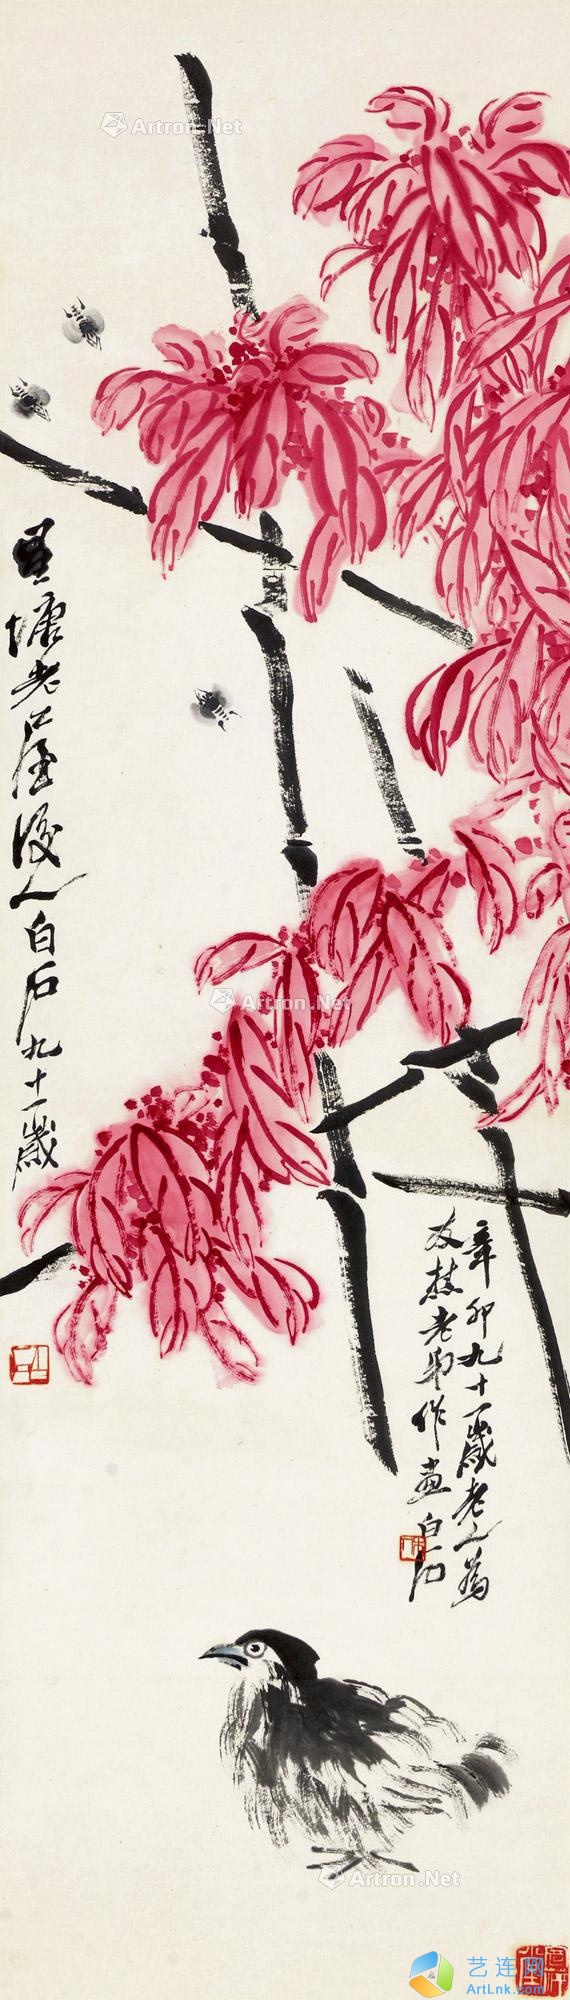 Artron.Net
星塘老屋後人白石九十一歲
Artron.Net
辛卯九十一歲老人為
友老弟作畫白石
Artron.Net
艺连网
ArtLnk.com